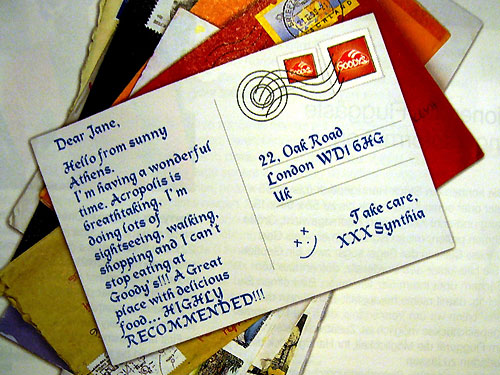 Dear Jane,
Hello from sunny
Athens.
I'm having a wonderful
time. Acropolis is
breathtaking. I'm
doing lots of
sightseeing, walking,
shopping and I can't
stop eating at
Goody's!!! A Great
place with delicious
food... HIGHLY
RECOMMENDED!!!
GOODY'S
GOODY'S
22, Oak Road
London WD1 6HG
UK
Take care,
XXX Synthia